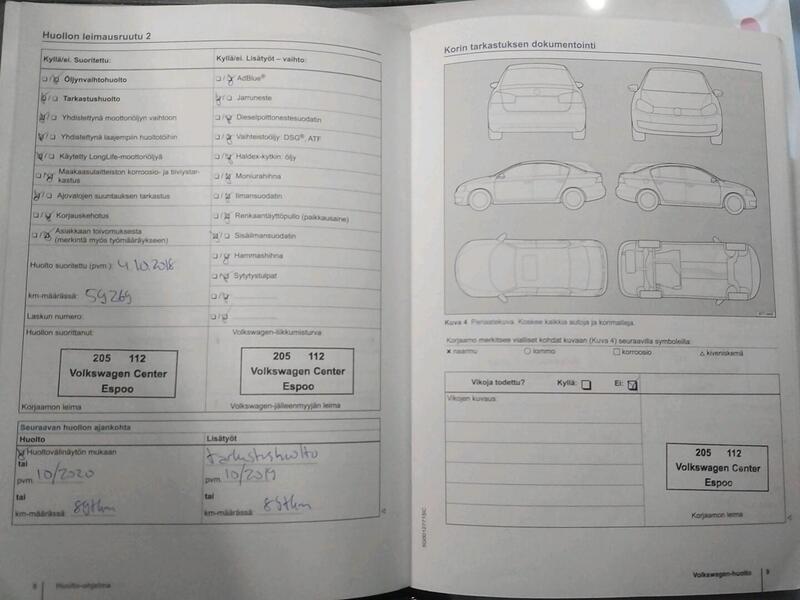 Huollon leimausruutu 2
Kyllä/ei. Suoritettu:
Kyllä/ei. Lisätyöt – vaihto:
Öljynvaihtohuolto
AdBlue®
Tarkastushuolto
Jarruneste
Yhdistettynä moottoriöljyn vaihtoon
Dieselpolttonestesuodatin
Yhdistettynä laajempiin huoltotöihin
Vaihteistoöljy: DSG®, ATF
Käytetty LongLife-moottoriöljyä
Haldex-kytkin: öljy
Maakaasulaitteiston korroosio- ja tiiviystar-
kastus
Moniurahihna
Ajovalojen suuntauksen tarkastus
Ilmansuodatin
Korjauskehotus
Renkaantäyttöpullo (paikkausaine)
Asiakkaan toivomuksesta
(merkintä myös työmääräykseen)
Sisäilmansuodatin
Huolto suoritettu (pvm.): 4.10.2018
Hammashihna
Sytytystulpat
km-määrässä: 59269
Laskun numero:
Huollon suorittanut:
Volkswagen-liikkumisturva
205 112
Volkswagen Center
Espoo
205 112
Volkswagen Center
Espoo
Korjaamon leima
Volkswagen-jälleenmyyjän leima
Seuraavan huollon ajankohta
Huolto
Lisätyöt
Huoltovälinäytön mukaan
tarkastushuolto
tai
tai
pvm. 10/2020
pvm. 10/2019
tai
tai
km-määrässä: 89tkm
km-määrässä: 89tkm
8 Huolto-ohjelma
Korin tarkastuksen dokumentointi
Kuva 4 Periaatekuva. Koskee kaikkia autoja ja korimalleja.
Korjaamo merkitsee vialliset kohdat kuvaan (Kuva 4) seuraavilla symboleilla:
× naarmu
○ lommo
□ korroosio
△ kiveniskemä
Vikoja todettu? Kyllä: Ei:
Vikojen kuvaus:
205 112
Volkswagen Center
Espoo
Korjaamon leima
Volkswagen-huolto 9